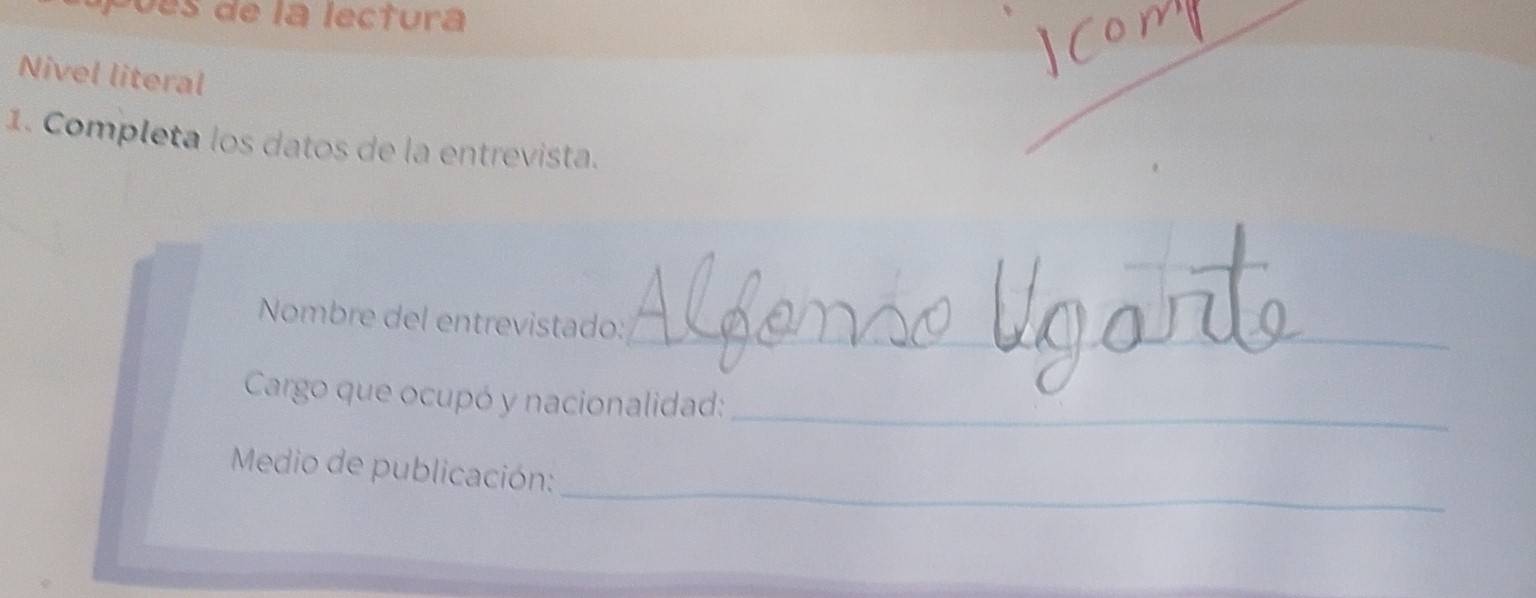 de la lectura
Nivel literal
1. Completa los datos de la entrevista.
Nombre del entrevistado: Alfonso Ugarte
Cargo que ocupó y nacionalidad:
Medio de publicación: